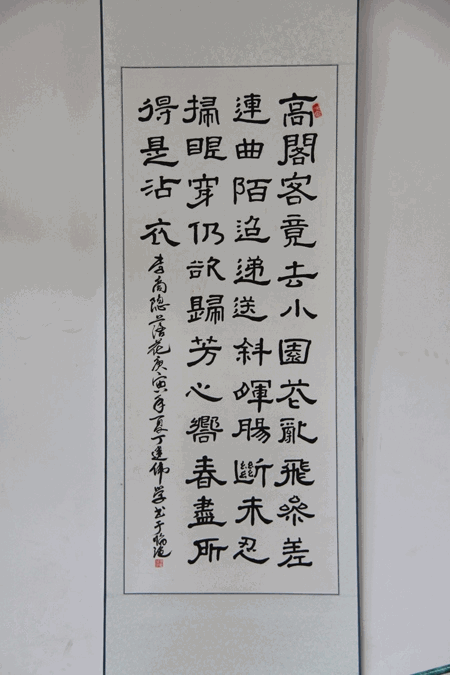 高閣客竟去小園花亂飛參差
連曲陌迢遞送斜暉腸斷未忍
掃眼穿仍欲歸芳心嚮春盡所
得是沾衣
李商隐落花庚寅年夏丁伟学书于